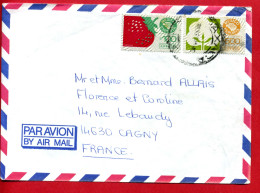 Mr et Mme Bernard ALLAIS
Florence et Caroline
14, rue Lebaudy
14630 CAGNY
FRANCE
PAR AVION
BY AIR MAIL